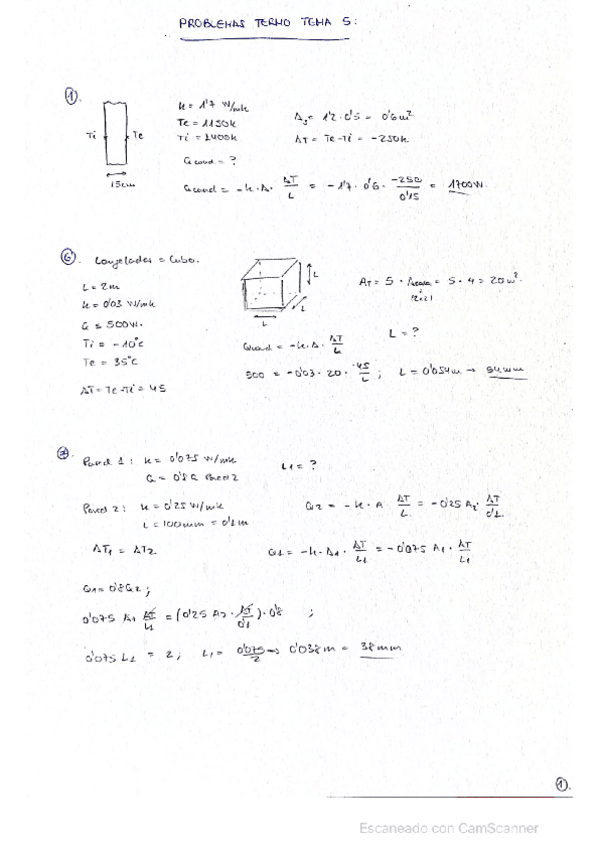 PROBLEMAS TERMO TEMA 5:
1.
k = 1'7 W/mk
Te = 1150k
Ti = 1400k
Qcond = ?
Ti
Te
15cm
As = 1'2 · 0'5 = 0'6 m²
ΔT = Te - Ti = -250k
Qcond = -k · A · ΔT/L = -1'7 · 0'6 · -250/0'15 = 1700W.
6. Congelador = Cubo.
L = 2m
k = 0'03 W/mk
Q ≤ 500W.
Ti = -10°C
Te = 35°C
ΔT = Te - Ti = 45
L
L
L
AT = 5 · = 5 · 4 = 20 m².
(2x2)
L = ?
Qcond = -k · A · ΔT/L
500 = -0'03 · 20 · 45/L ; L = 0'054m → 54mm
7.
Pared 1: k = 0'075 W/mk
Q = 0'8 Q pared 2
L1 = ?
Pared 2: k = 0'25 W/mk
L = 100mm = 0'1m
Q2 = -k · A ΔT/L = -0'25 A2 · ΔT/0'1
ΔT1 = ΔT2
Q1 = -k · A1 · ΔT/L1 = -0'075 A1 · ΔT/L1
Q1 = 0'8Q2 ;
0'075 A1 ΔT/L1 = (0'25 A2 · ΔT/0'1) · 0'8 ;
0'075 L1 = 2 ; L1 = 0'075/2 → 0'038m = 38mm
1.
Escaneado con CamScanner